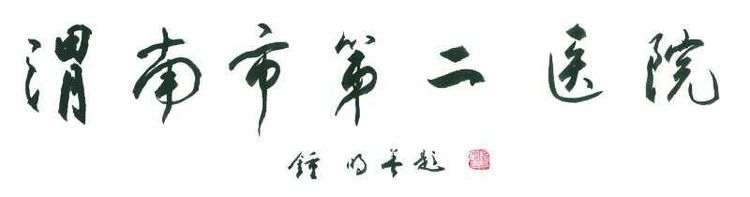 渭南市第二医院
钟明善题